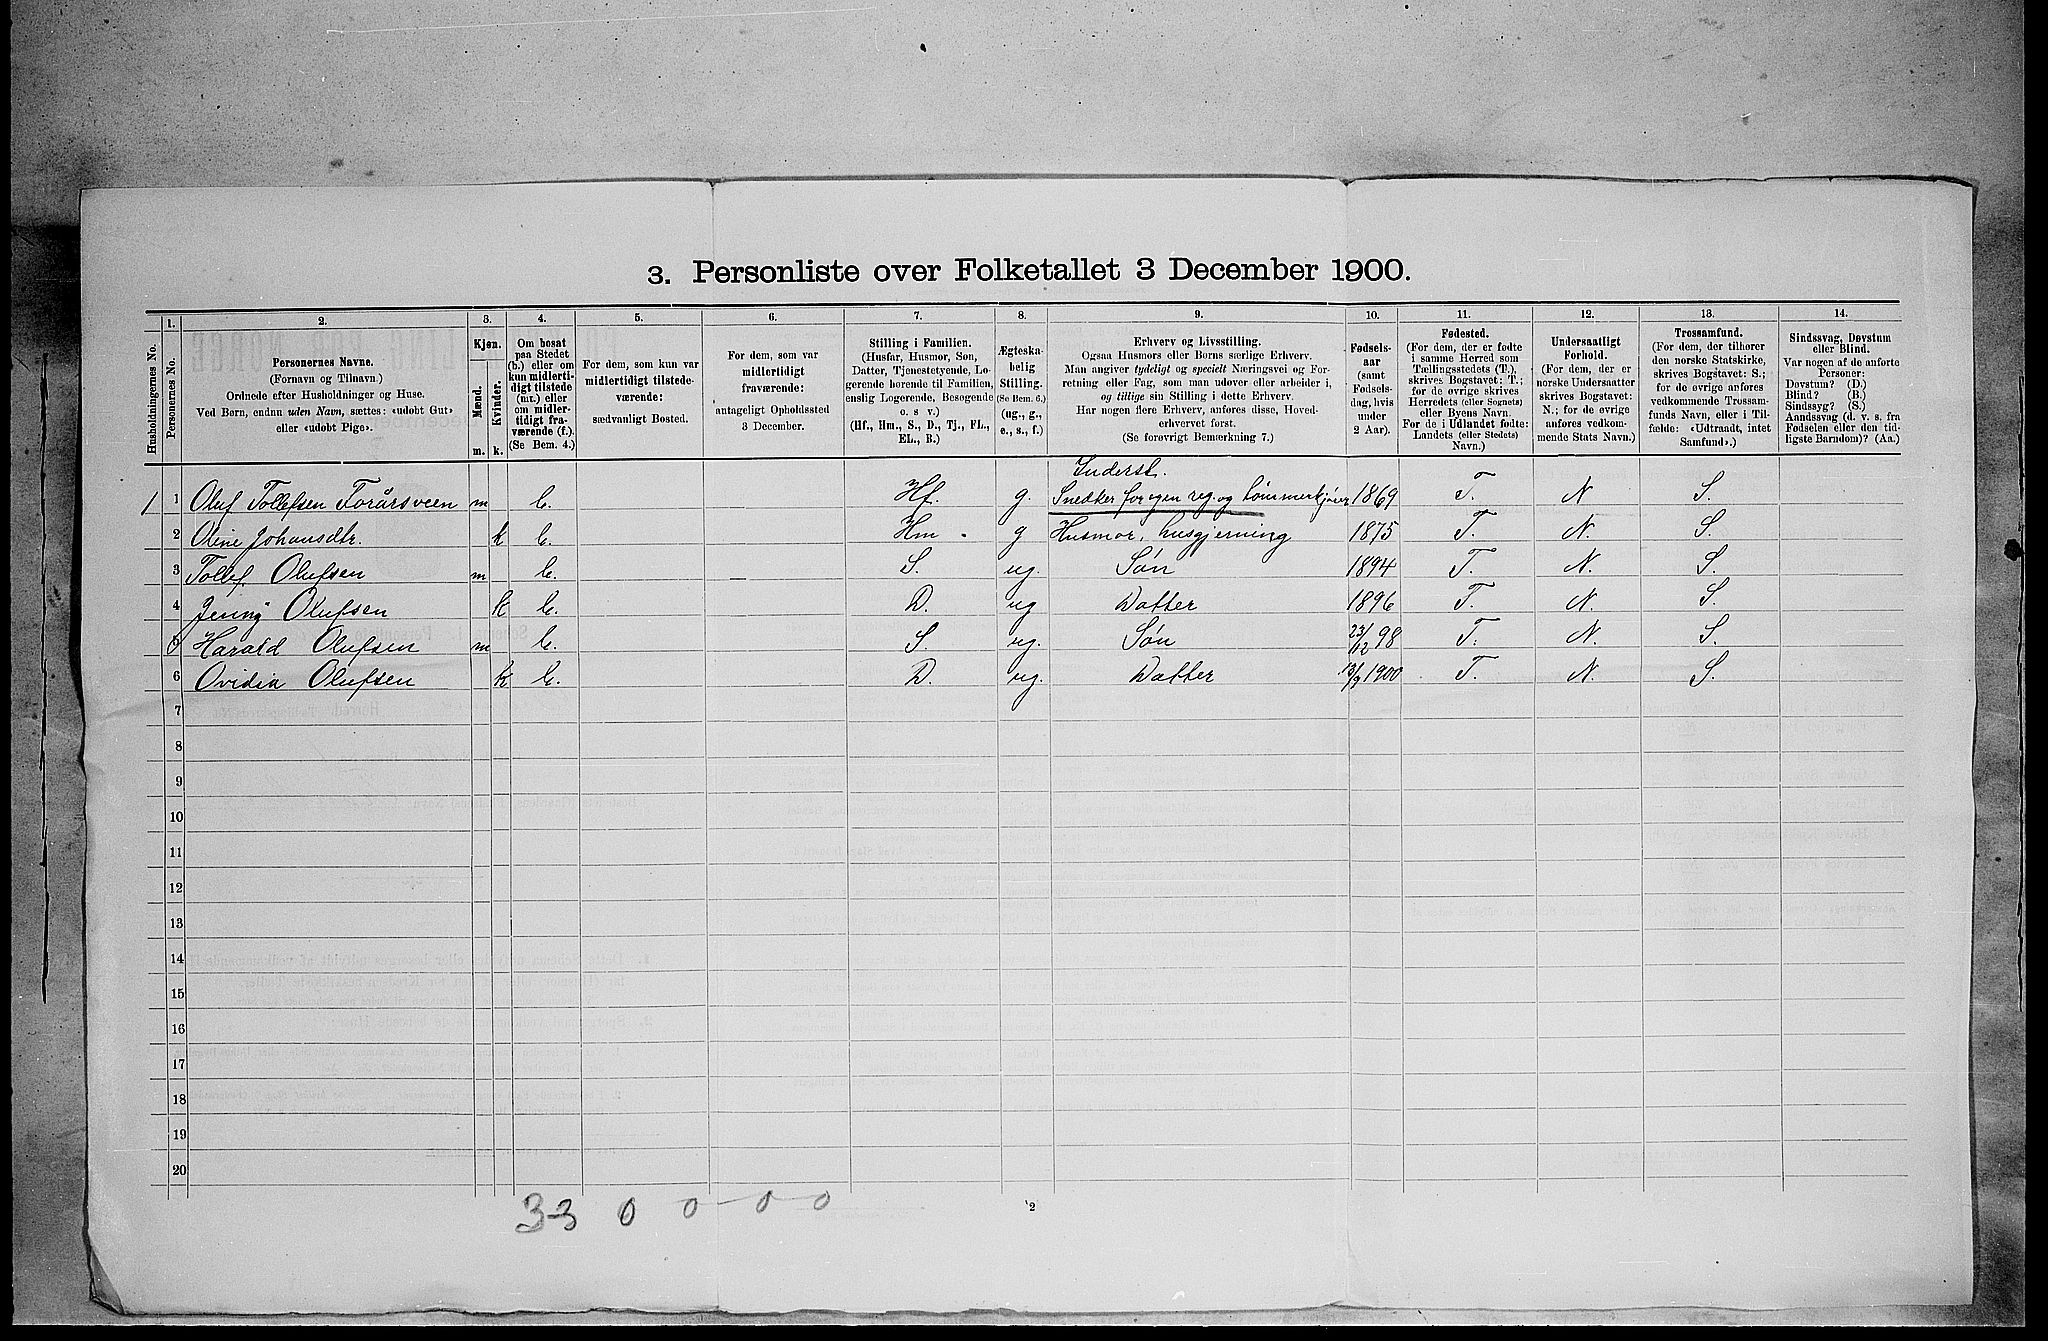 3. Personliste over Folketallet 3 December 1900.
1. 2. 3. 4. 5. 6. 7. 8. 9. 10. 11. 12. 13. 14.
Husholdningernes No.
Personernes No.
Personernes Navne.
(Fornavn og Tilnavn.)
Ordnede efter Husholdninger og Huse.
Ved Børn, endnu uden Navn, sættes: «udøbt Gut»
eller «udøbt Pige».
Kjøn.
Mænd.
Kvinder.
m. k.
Om bosat
paa Stedet
(b.) eller om
kun midlerti-
digt tilstede
(mt.) eller
om midler-
tidigt fra-
værende (f.).
(Se Bem. 4.)
For dem, som kun var
midlertidigt tilstede-
værende:
sædvanligt Bosted.
For dem, som var
midlertidigt
fraværende:
antageligt Opholdssted
3 December.
Stilling i Familien.
(Husfar, Husmor, Søn,
Datter, Tjenestetyende, Lo-
gerende hørende til Familien,
enslig Logerende, Besøgende
o. s v.)
(Hf., Hm., S., D., Tj., FL.,
EL., B.)
Ægteska-
belig
Stilling.
(Se Bem. 6.)
(ug., g.,
e., s., f.)
Erhverv og Livsstilling.
Ogsaa Husmors eller Børns særlige Erhverv.
Man angiver tydeligt og specielt Næringsvei og For-
retning eller Fag, som man udøver eller arbeider i,
og tillige sin Stilling i dette Erhverv.
Har nogen flere Erhverv, anføres disse, Hoved-
erhvervet først.
(Se forøvrigt Bemerkning 7.)
Fødsels-
aar
(samt
Fødsels-
dag, hvis
under
2 Aar).
Fødested.
(For dem, der er fødte
i samme Herred som
Tællingsstedets (T.),
skrives Bogstavet: T.;
for de øvrige skrives
Herredets (eller Sognets)
eller Byens Navn.
For de i Udlandet fødte:
Landets (eller Stedets)
Navn.)
Undersaatligt
Forhold.
(For dem, der er
norske Undersaatter
skrives Bogstavet:
N.; for de øvrige
anføres vedkom-
mende Stats Navn.)
Trossamfund.
(For dem, der tilhører
den norske Statskirke,
skrives Bogstavet: S.;
for de øvrige anføres
vedkommende Trossam-
funds Navn, eller i Til-
fælde: «Udtraadt, intet
Samfund».)
Sindssvag, Døvstum
eller Blind.
Var nogen af de anførte
Personer:
Døvstum? (D.)
Blind? (B.)
Sindssyg? (S.)
Aandssvag (d. v. s. fra
Fødselen eller den tid-
ligste Barndom)? (Aa.)
Inderst.
1 1 Oluf Tollefsen Forårsveen m b. Hf. g. Snedker for egen reg. og tømmerkjører 1869 T. N S.
2 Oline Johansdtr. k b. Hm. g Husmor, husgjerning 1875 T. N. S.
3 Tollef Olufsen m b. S. ug. Søn 1894 T. N. S.
4 Jenny Olufsen k b. D. ug Datter 1896 T. N. S.
5 Harald Olufsen m b. S. ug. Søn 23/12 98 T. N. S.
6 Ovidia Olufsen k b. D. ug. Datter 13/9 1900 T. N. S.
7
8
9
10
11
12
13
14
15
16
17
18
19
20
3-3 0 0-0-0
2